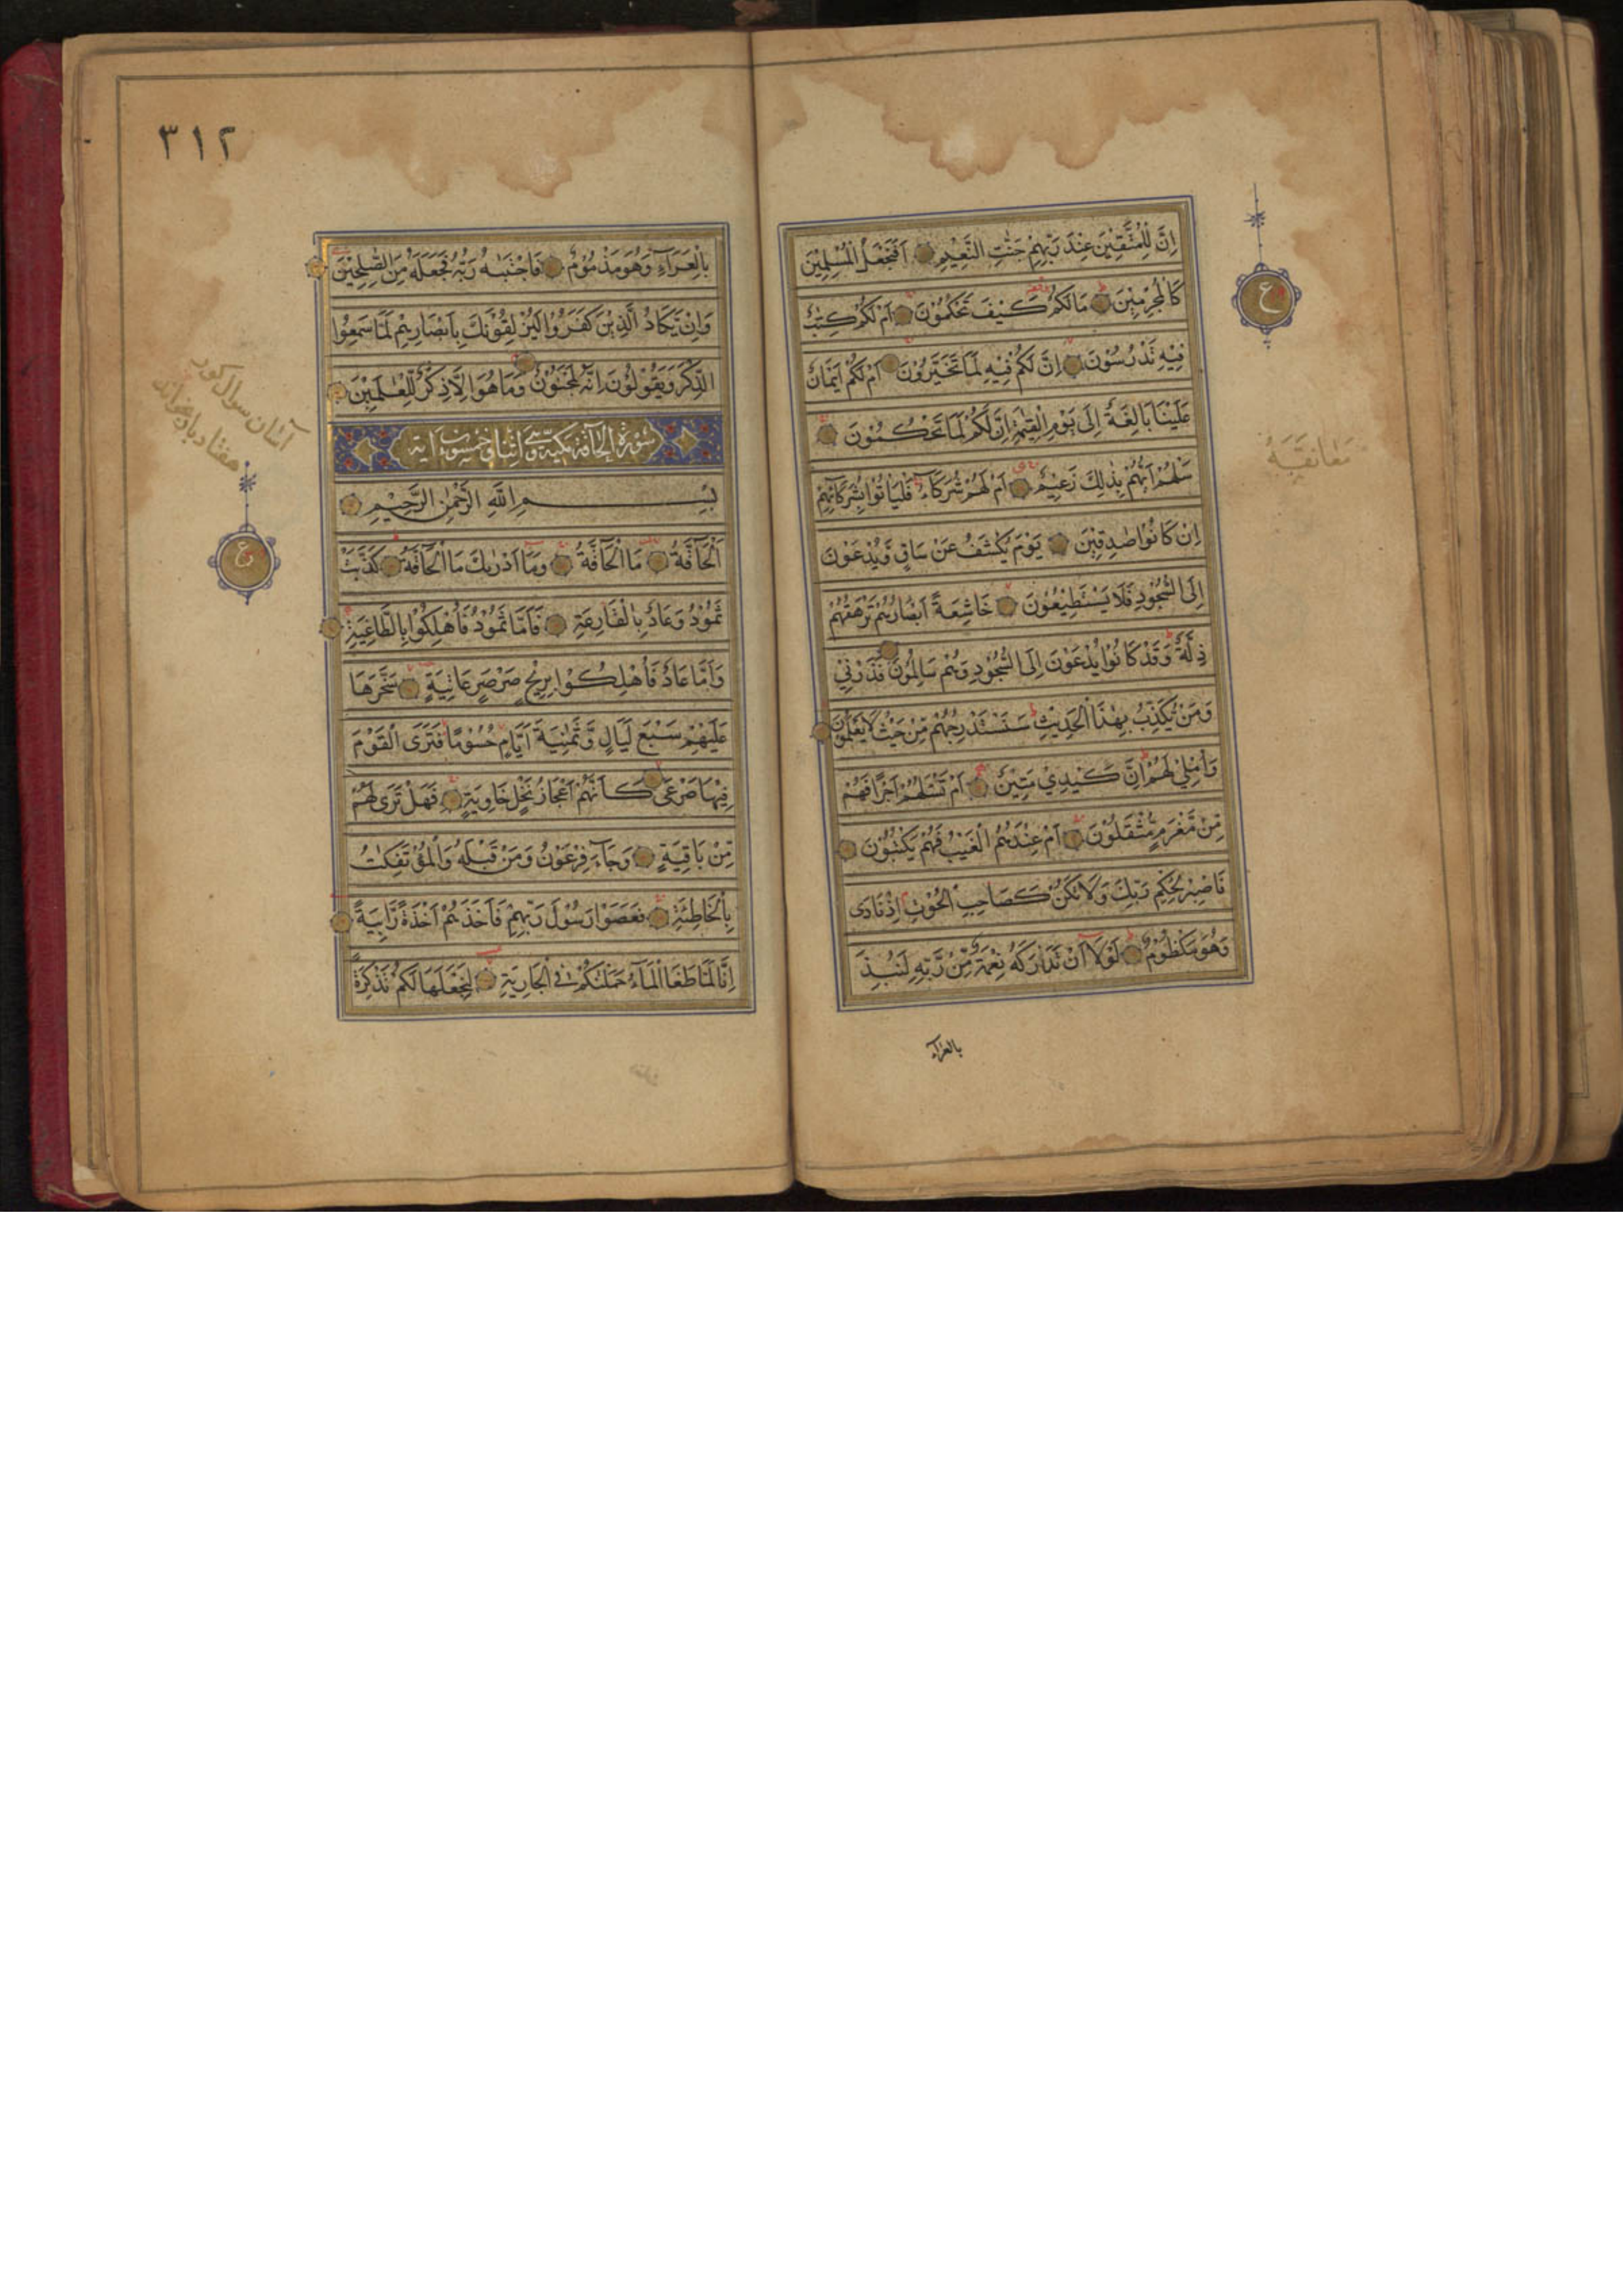 اِنَّ لِلْمُتَّقِيْنَ عِنْدَ رَبِّهِمْ جَنّٰتِ النَّعِيْمِ اَفَنَجْعَلُ الْمُسْلِمِيْنَ
كَالْمُجْرِمِيْنَ مَا لَكُمْ كَيْفَ تَحْكُمُوْنَ اَمْ لَكُمْ كِتٰبٌ
فِيْهِ تَدْرُسُوْنَ اِنَّ لَكُمْ فِيْهِ لَمَا تَخَيَّرُوْنَ اَمْ لَكُمْ اَيْمَانٌ
عَلَيْنَا بَالِغَةٌ اِلٰى يَوْمِ الْقِيٰمَةِ اِنَّ لَكُمْ لَمَا تَحْكُمُوْنَ
سَلْهُمْ اَيُّهُمْ بِذٰلِكَ زَعِيْمٌ اَمْ لَهُمْ شُرَكَآءُ فَلْيَاْتُوْا بِشُرَكَآئِهِمْ
اِنْ كَانُوْا صٰدِقِيْنَ يَوْمَ يُكْشَفُ عَنْ سَاقٍ وَّيُدْعَوْنَ
اِلَى السُّجُوْدِ فَلَا يَسْتَطِيْعُوْنَ خَاشِعَةً اَبْصَارُهُمْ تَرْهَقُهُمْ
ذِلَّةٌ وَقَدْ كَانُوْا يُدْعَوْنَ اِلَى السُّجُوْدِ وَهُمْ سَالِمُوْنَ فَذَرْنِيْ
وَمَنْ يُّكَذِّبُ بِهٰذَا الْحَدِيْثِ سَنَسْتَدْرِجُهُمْ مِّنْ حَيْثُ لَا يَعْلَمُوْنَ
وَاُمْلِيْ لَهُمْ اِنَّ كَيْدِيْ مَتِيْنٌ اَمْ تَسْـَٔلُهُمْ اَجْرًا فَهُمْ
مِّنْ مَّغْرَمٍ مُّثْقَلُوْنَ اَمْ عِنْدَهُمُ الْغَيْبُ فَهُمْ يَكْتُبُوْنَ
فَاصْبِرْ لِحُكْمِ رَبِّكَ وَلَا تَكُنْ كَصَاحِبِ الْحُوْتِ اِذْ نَادٰى
وَهُوَ مَكْظُوْمٌ لَوْلَا اَنْ تَدَارَكَهُ نِعْمَةٌ مِّنْ رَّبِّهِ لَنُبِذَ
بالعرآء
ع
٣١٢
بِالْعَرَآءِ وَهُوَ مَذْمُوْمٌ فَاجْتَبٰىهُ رَبُّهُ فَجَعَلَهُ مِنَ الصّٰلِحِيْنَ
وَاِنْ يَّكَادُ الَّذِيْنَ كَفَرُوْا لَيُزْلِقُوْنَكَ بِاَبْصَارِهِمْ لَمَّا سَمِعُوا
الذِّكْرَ وَيَقُوْلُوْنَ اِنَّهُ لَمَجْنُوْنٌ وَمَا هُوَ اِلَّا ذِكْرٌ لِّلْعٰلَمِيْنَ
سورة الحاقة مكية وهي اثنا وخمسون اية
بِسْمِ اللّٰهِ الرَّحْمٰنِ الرَّحِيْمِ
اَلْحَآقَّةُ مَا الْحَآقَّةُ وَمَا اَدْرٰىكَ مَا الْحَآقَّةُ كَذَّبَتْ
ثَمُوْدُ وَعَادٌ بِالْقَارِعَةِ فَاَمَّا ثَمُوْدُ فَاُهْلِكُوْا بِالطَّاغِيَةِ
وَاَمَّا عَادٌ فَاُهْلِكُوْا بِرِيْحٍ صَرْصَرٍ عَاتِيَةٍ سَخَّرَهَا
عَلَيْهِمْ سَبْعَ لَيَالٍ وَّثَمٰنِيَةَ اَيَّامٍ حُسُوْمًا فَتَرَى الْقَوْمَ
فِيْهَا صَرْعٰى كَاَنَّهُمْ اَعْجَازُ نَخْلٍ خَاوِيَةٍ فَهَلْ تَرٰى لَهُمْ
مِّنْ بَاقِيَةٍ وَجَآءَ فِرْعَوْنُ وَمَنْ قَبْلَهُ وَالْمُؤْتَفِكٰتُ
بِالْخَاطِئَةِ فَعَصَوْا رَسُوْلَ رَبِّهِمْ فَاَخَذَهُمْ اَخْذَةً رَّابِيَةً
اِنَّا لَمَّا طَغَا الْمَآءُ حَمَلْنٰكُمْ فِي الْجَارِيَةِ لِنَجْعَلَهَا لَكُمْ تَذْكِرَةً
آسان سوال كور
هفتاد بار بخواند
ع